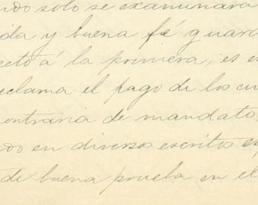 solo se examinara
da y buena fé guard
ecto á la primera, es
clama el pago de los cu
ontraria de mandato,
en diversos escritos
de buena prueba en el